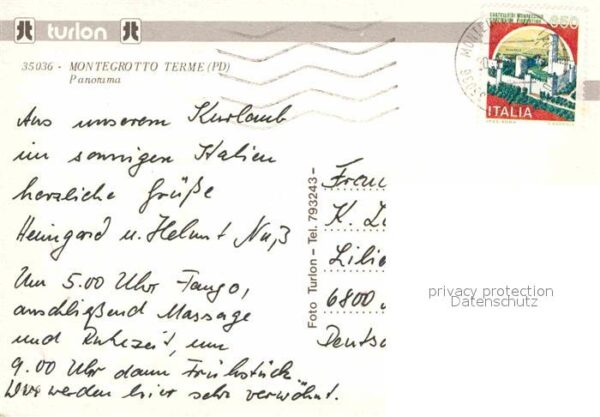 turlon
35036 - MONTEGROTTO TERME (PD)
Panorama
650
ITALIA
Aus unserem Kurlaub
im sonnigen Italien
herzliche Grüße
Heimgard u. Helmut Nuß
Um 5.00 Uhr Fango,
anschließend Massage
und Ruhezeit, um
9.00 Uhr dann Frühstück.
Wir werden hier sehr verwöhnt.
Foto Turlon - Tel. 793243 -
K.
Lilie
6800
Deutsc
privacy protection
Datenschutz